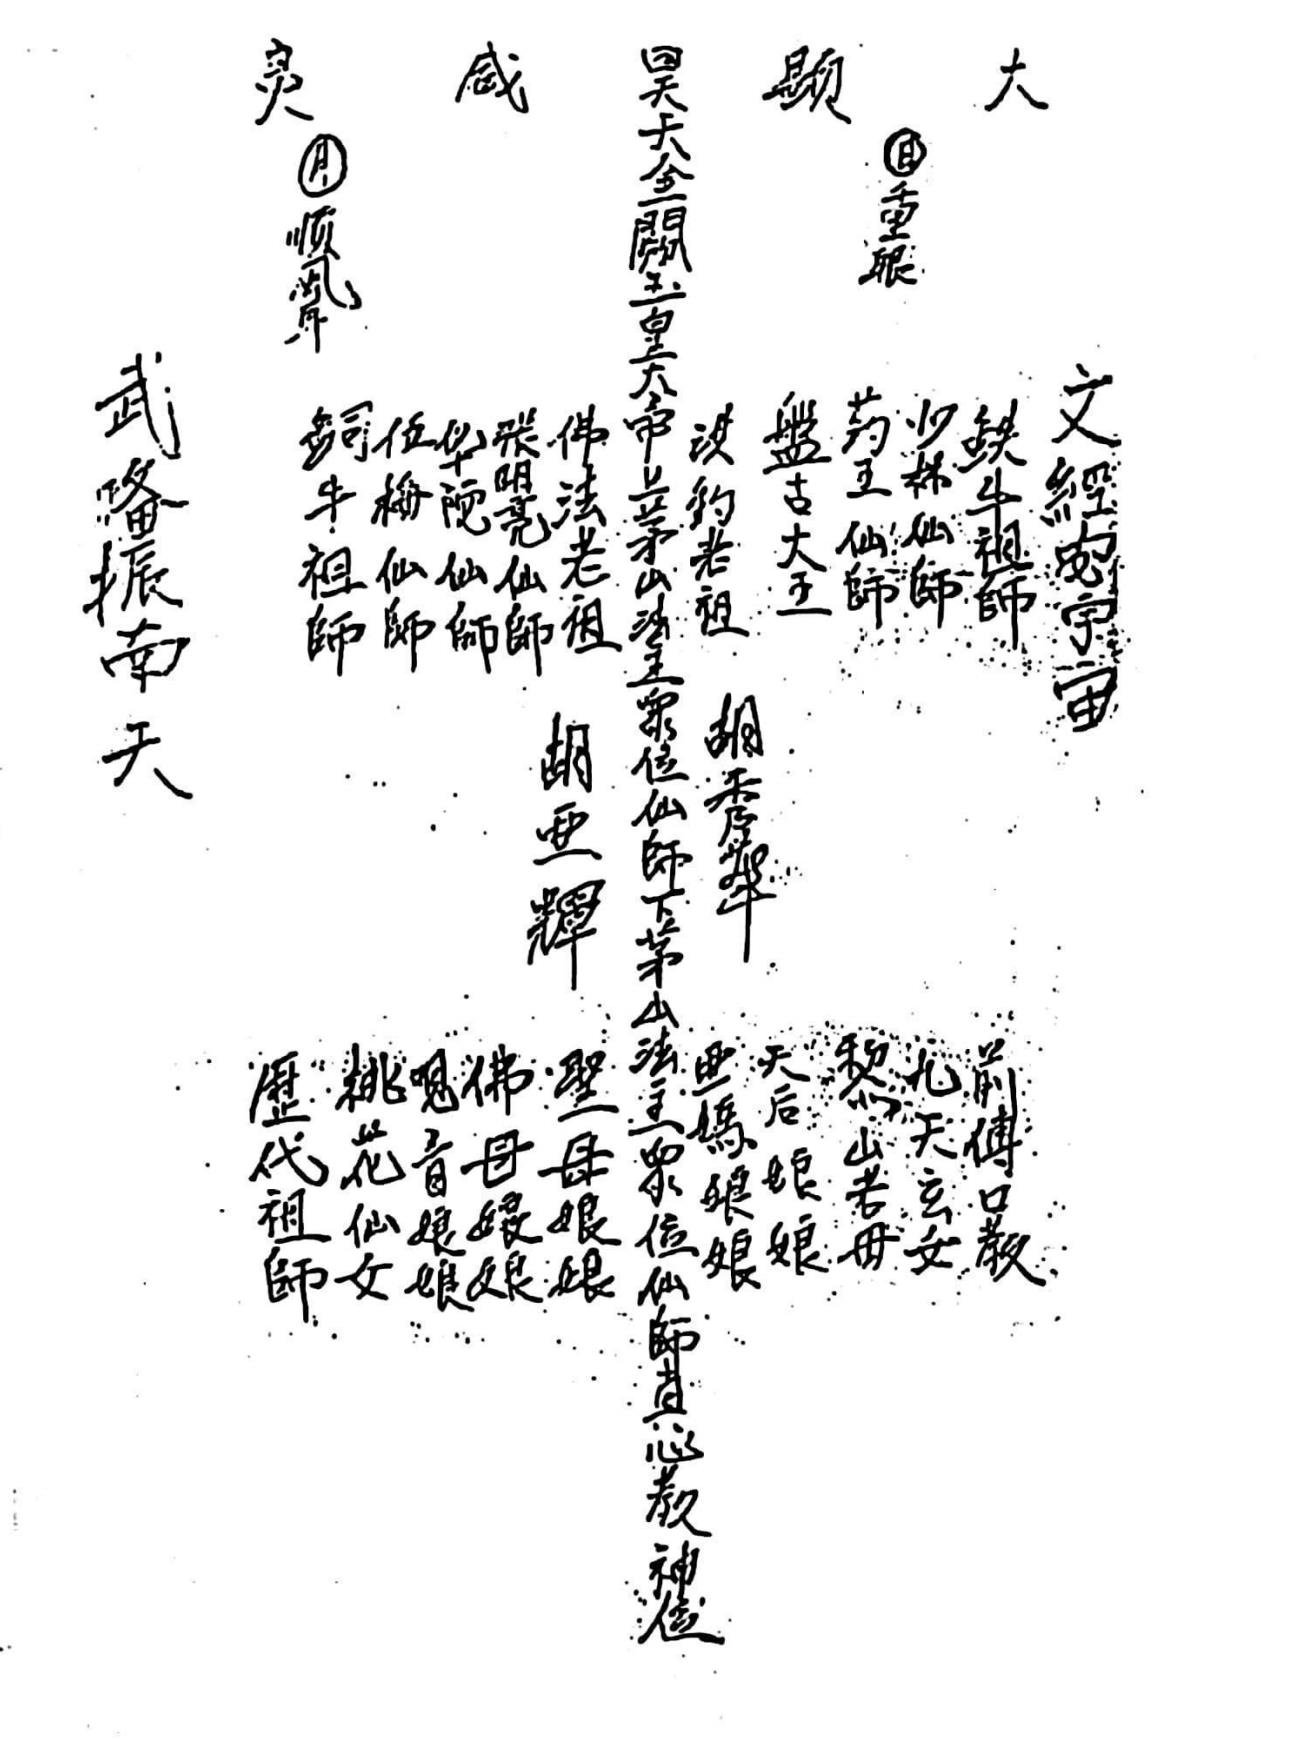 大顯感灵
日
重眼
月
順風聲
文經宇宙
武隆振南天
鉄牛祖師
少林仙師
药王仙師
盤古大王
鈞老祖
昊天金闕玉皇大帝上茅山法主眾位仙師下茅山法主眾位仙師真心教神位
佛法老祖
張明亮仙師
华陀仙師
伍梅仙師
飼牛祖師
胡秀華
胡亜輝
前傳口教
九天玄女
黎山老母
天后娘娘
亜媽娘娘
聖母娘娘
佛母娘娘
观音娘娘
桃花仙女
歷代祖師